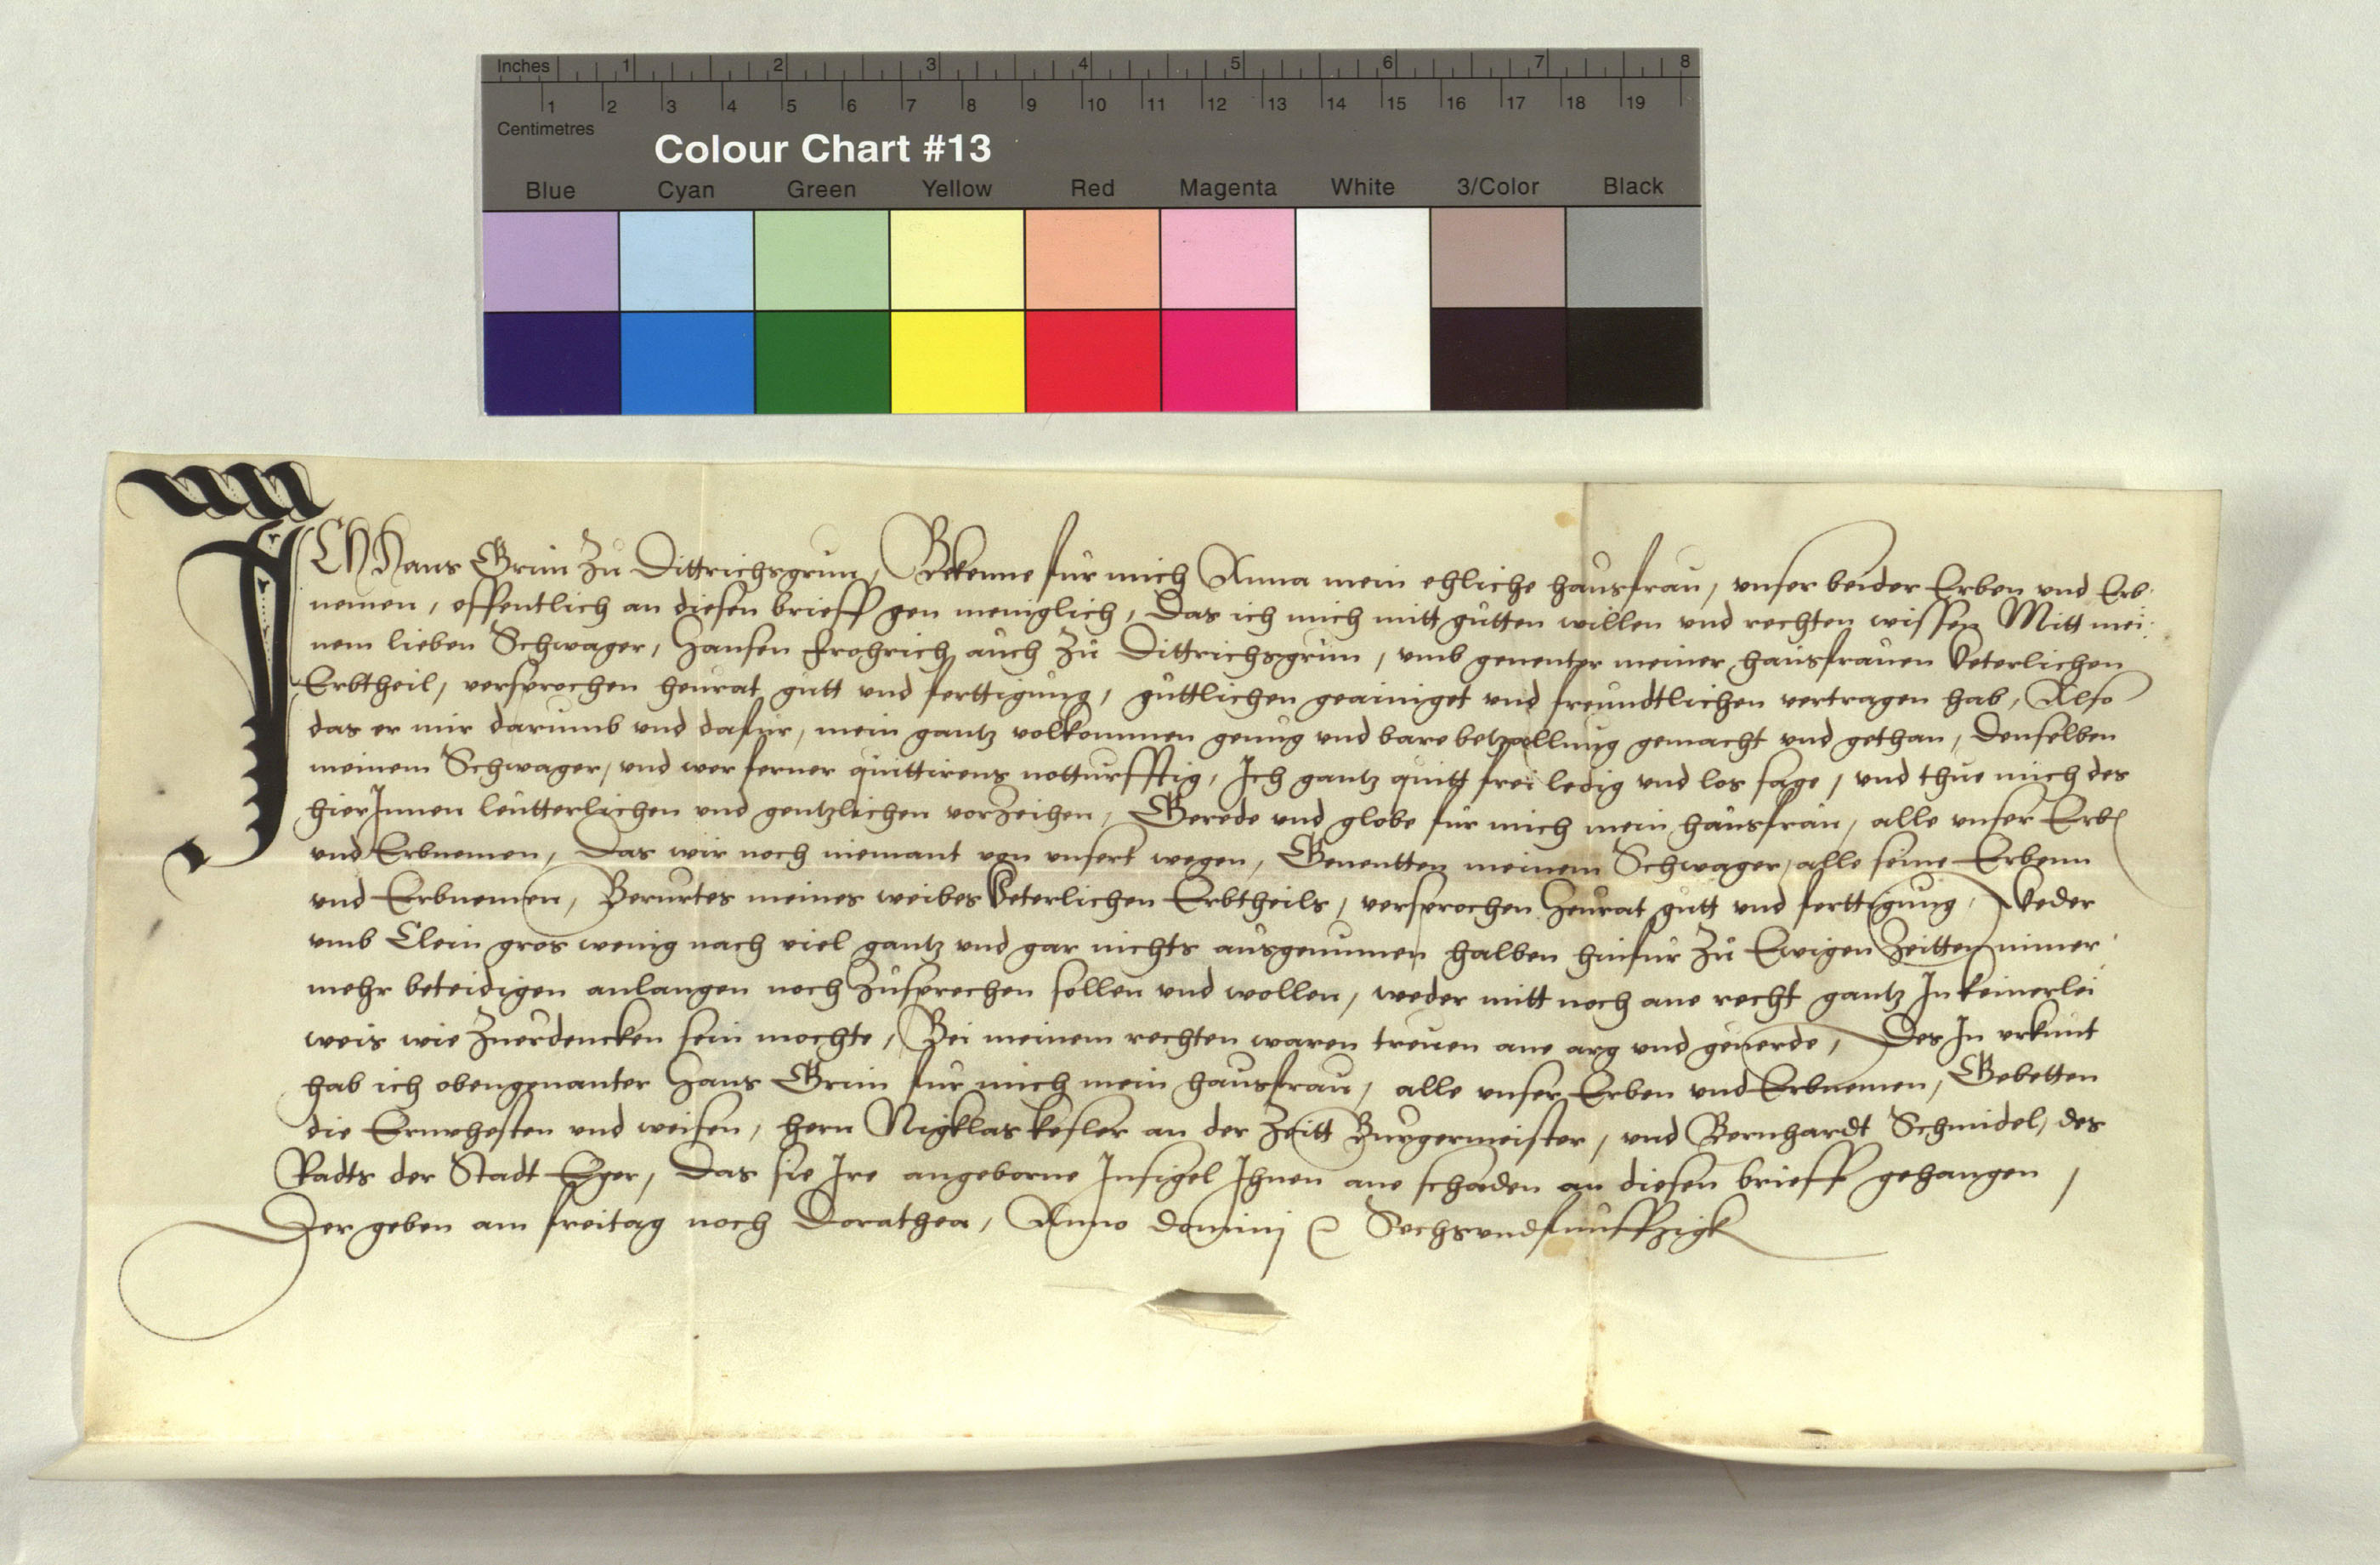 Inches 1 2 3 4 5 6 7 8
1 2 3 4 5 6 7 8 9 10 11 12 13 14 15 16 17 18 19
Centimetres
Colour Chart #13
Blue Cyan Green Yellow Red Magenta White 3/Color Black
ICH Hans Grim Zu Dittrichsgrun, Bekenne fur mich Anna mein ehliche hausfrau, unser beider Erben und Erb:
nemen, offentlich an diesen brieff gen meniglich, Das ich mich mitt gutten willen und rechten wissen Mitt mei:
nem lieben Schwager, Hansen Frohrich auch Zu Dittrichsgrun, umb genenter meiner hausfrauen Veterlichen
Erbtheil, versprochen heurat gutt und ferttigung, guttlichen geainiget und freundtlichen vertragen hab, Also
das er mir darumb und dafur, mein gantz volkommen genug und bare betzallung gemacht und gethan, Denselben
meinem Schwager, und wer ferner quittirens notturfftig, Ich gantz quitt frei ledig und los sage, und thue mich des
hierInnen leutterlichen und gentzlichen vorzeihen, Gerede und globe fur mich mein hausfrau, alle unser Erb
und Erbnemen, Das wir noch niemant von unsert wegen, Genentten meinem Schwager, alle seine Erbenn
und Erbnemen, Berurtes meines weibes Veterlichen Erbtheils, versprochen Heurat gutt und ferttigung, Weder
umb Clein gros wenig nach viel gantz und gar nichts ausgenumen halben hinfur Zu Ewigen Zeitten nimer
mehr beteidigen anlangen noch Zusprechen sollen und wollen, weder mitt noch ane recht gantz In keinerlei
weis wie Zuerdencken sein mochte, Bei meinem rechten waren treuen ane arg und geuerde, Des In urkunt
hab ich obengenanter Hans Grim fur mich mein hausfrau, alle unser Erben und Erbnemen, Gebetten
die Ernvhesten und weisen, hern Nigklas kesler an der Zeitt Burgermeister, und Bernhardt Schmidel, des
Radts der Stadt Eger, Das sie Ire angeborne Insigel Ihnen ane schaden an diesen brieff gehangen,
Der geben am freitag noch Dorathea, Anno Dominj Sechsundfunffzigk